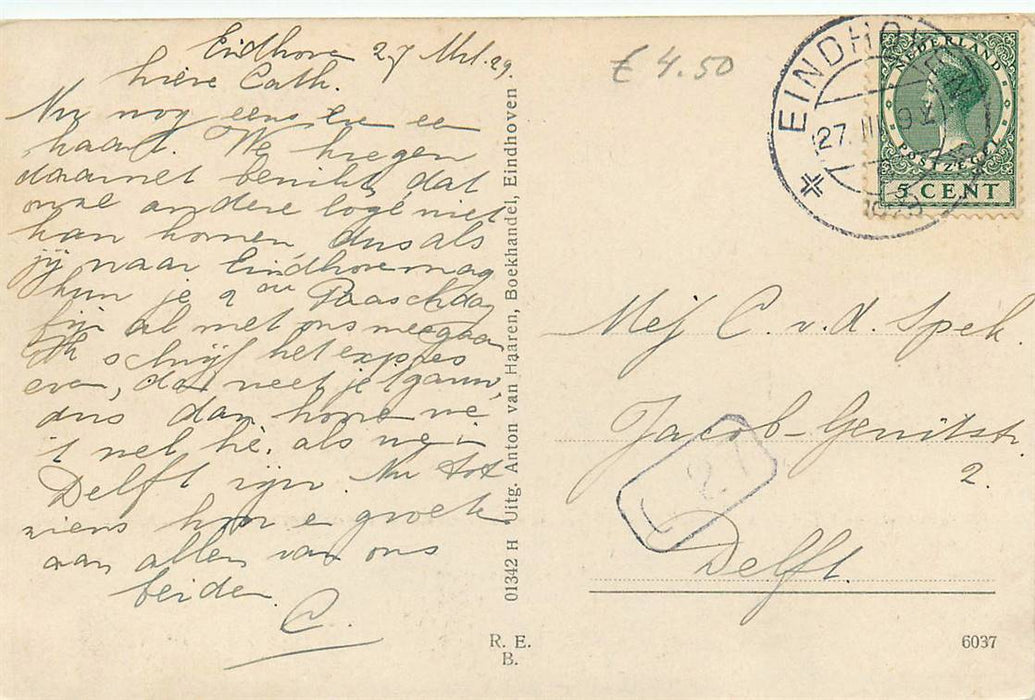 Eindhove 27 Mrt. 29.
Lieve Cath.
Nu nog eens ee
haast. We kregen
daarnet bericht, dat
onze andere logé niet
kan komen, dus als
jij naar Eindhove mag
kun je 2de Paaschdag
fijn al met ons meegaan
Ik schrijf het expres
even, dan weet je 't gauw,
dus dan hore we
't wel hè, als we i
Delft zijn. Nu tot
ziens hoor e groete
aan allen van ons
beiden.
C.
£ 4.50
EINDHOVEN
27. III 9
1929
NEDERLAND
POSTZEGEL
5 CENT
Mej C. v. d. Spek.
Jacob-Gerritstr.
2.
Delft.
01342 H Uitg. Anton van Haaren, Boekhandel, Eindhoven
R. E.
B.
6037